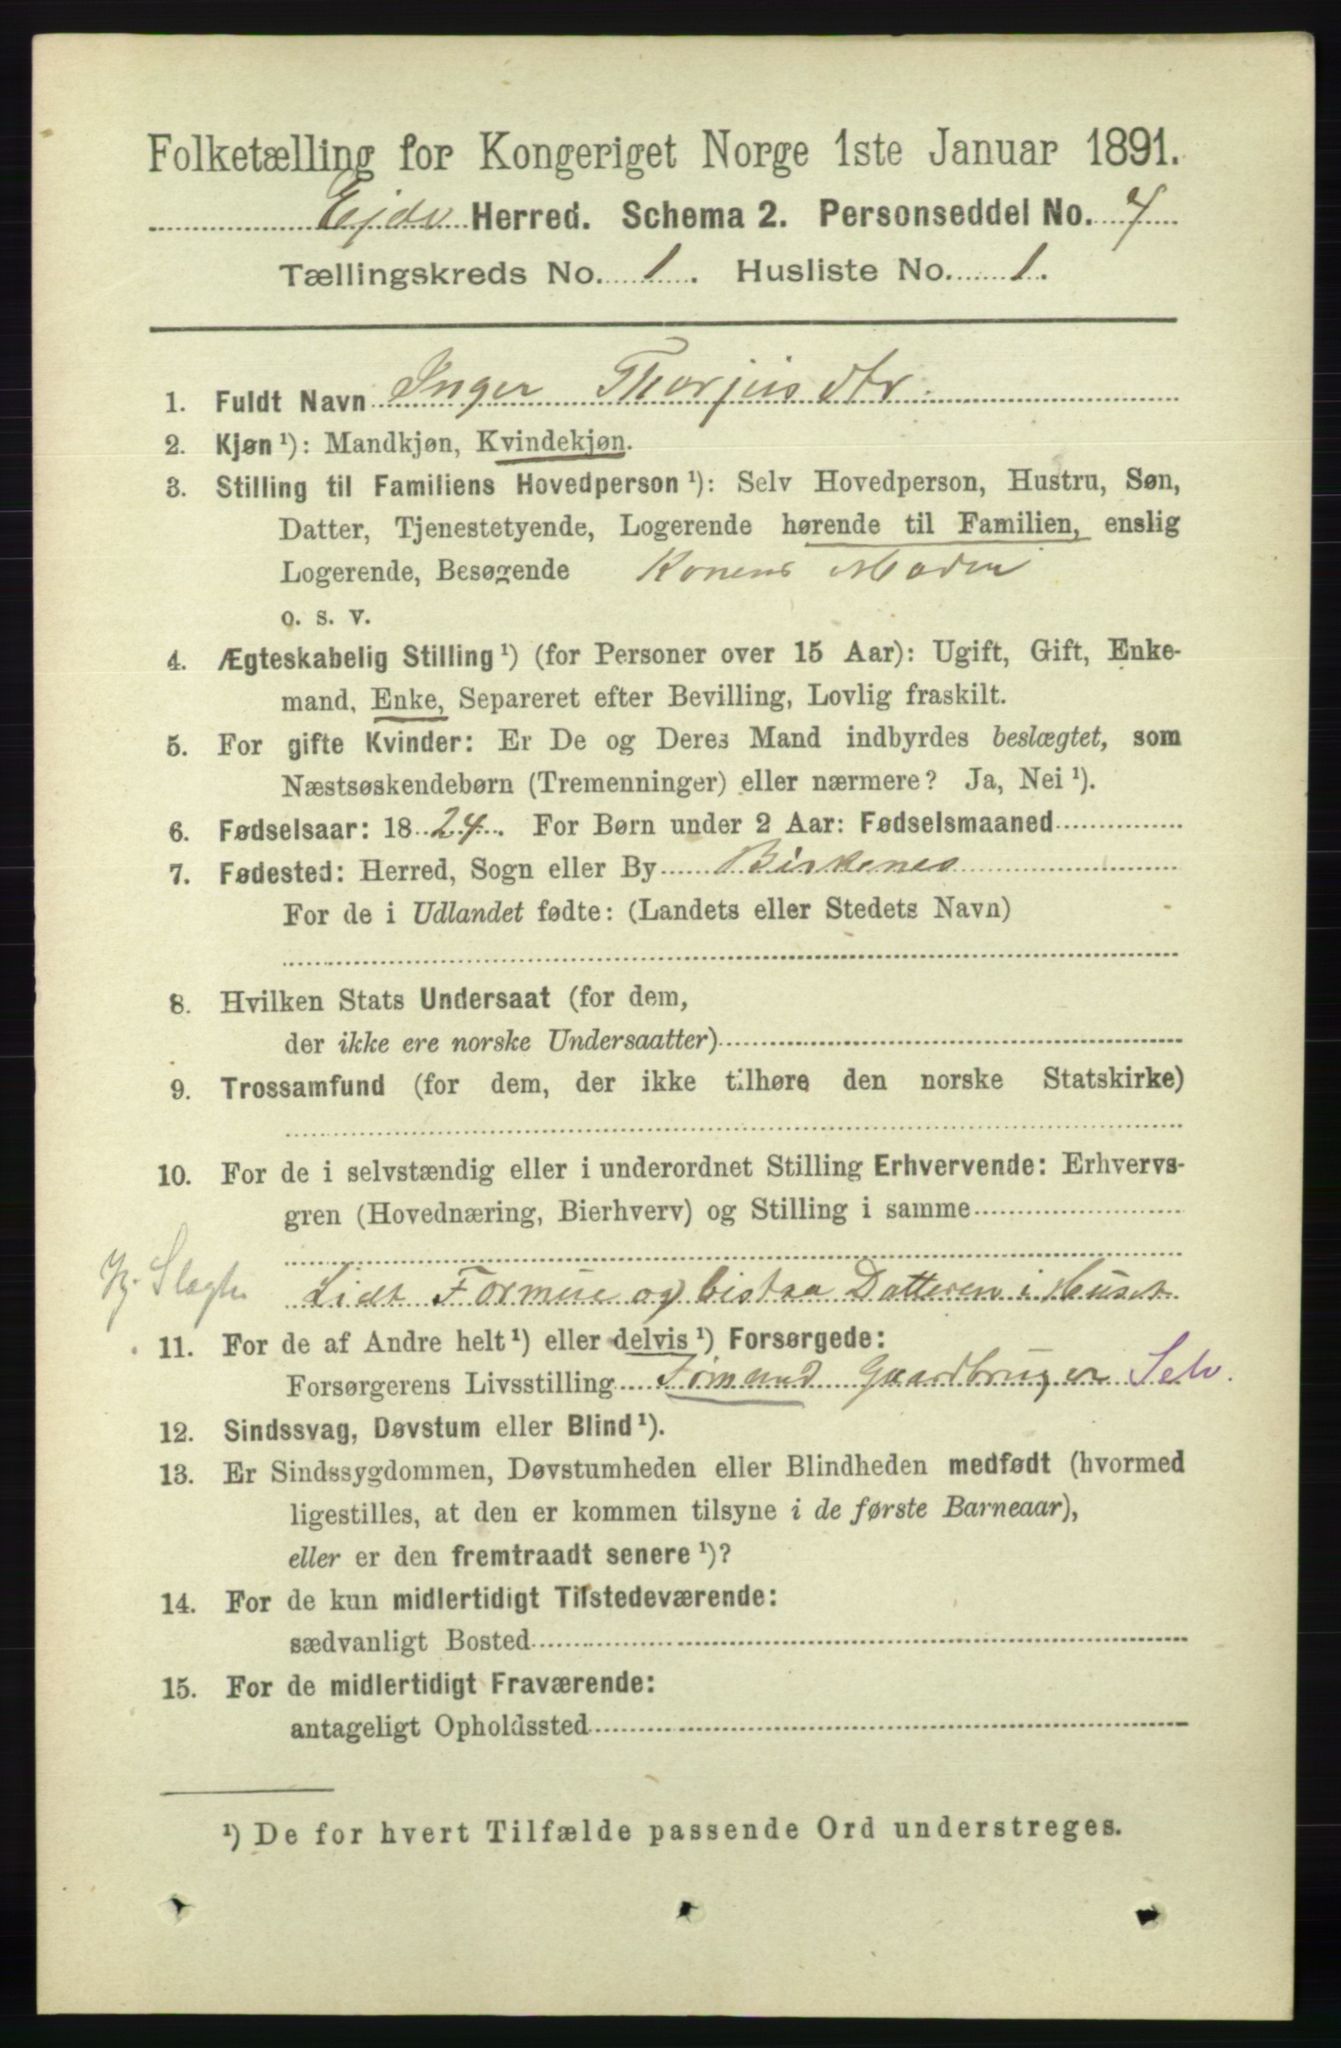 Folketælling for Kongeriget Norge 1ste Januar 1891.
Ejde Herred. Schema 2. Personseddel No. 7
Tællingskreds No. 1. Husliste No. 1.
1. Fuldt Navn Inger Thorjusdtr.
2. Kjøn ¹): Mandkjøn, Kvindekjøn.
3. Stilling til Familiens Hovedperson ¹): Selv Hovedperson, Hustru, Søn,
Datter, Tjenestetyende, Logerende hørende til Familien, enslig
Logerende, Besøgende Konens Moder
o. s. v.
4. Ægteskabelig Stilling ¹) (for Personer over 15 Aar): Ugift, Gift, Enke-
mand, Enke, Separeret efter Bevilling, Lovlig fraskilt.
5. For gifte Kvinder: Er De og Deres Mand indbyrdes beslægtet, som
Næstsøskendebørn (Tremenninger) eller nærmere? Ja, Nei ¹).
6. Fødselsaar: 1824. For Børn under 2 Aar: Fødselsmaaned
7. Fødested: Herred, Sogn eller By Birkenes
For de i Udlandet fødte: (Landets eller Stedets Navn)
8. Hvilken Stats Undersaat (for dem,
der ikke ere norske Undersaatter)
9. Trossamfund (for dem, der ikke tilhøre den norske Statskirke)
10. For de i selvstændig eller i underordnet Stilling Erhvervende: Erhvervs-
gren (Hovednæring, Bierhverv) og Stilling i samme
Slægtn. Lidt Formue og bistaa Datteren i Huset
11. For de af Andre helt ¹) eller delvis ¹) Forsørgede:
Forsørgerens Livsstilling Tømand Gaardbruger Selv.
12. Sindssvag, Døvstum eller Blind ¹).
13. Er Sindssygdommen, Døvstumheden eller Blindheden medfødt (hvormed
ligestilles, at den er kommen tilsyne i de første Barneaar),
eller er den fremtraadt senere ¹)?
14. For de kun midlertidigt Tilstedeværende:
sædvanligt Bosted
15. For de midlertidigt Fraværende:
antageligt Opholdssted
¹) De for hvert Tilfælde passende Ord understreges.